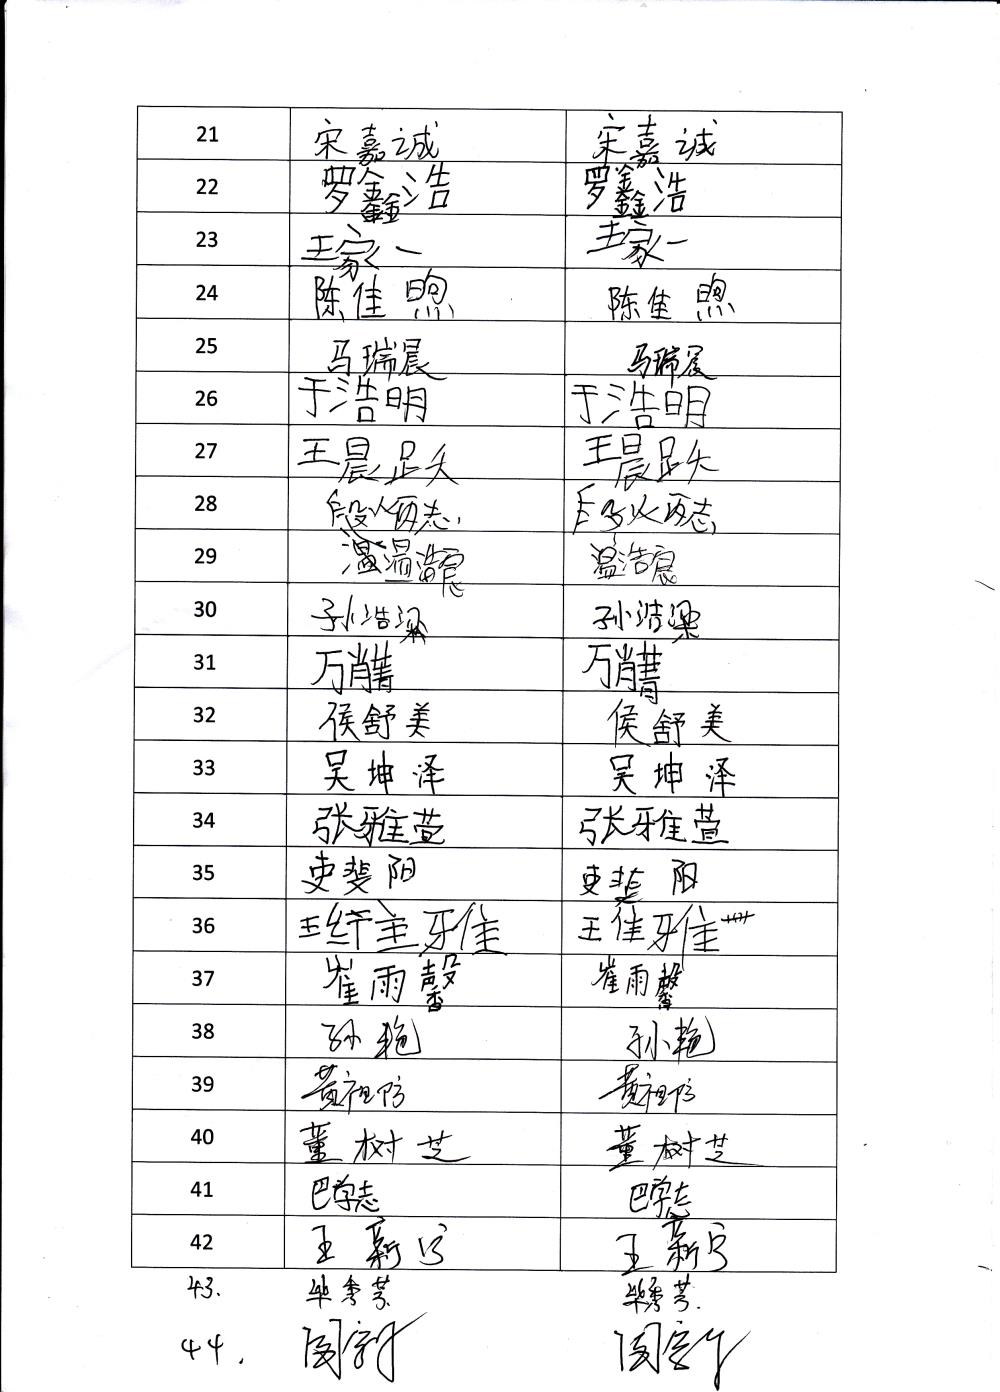 21 宋嘉诚 宋嘉诚
22 罗鑫浩 罗鑫浩
23 王家一 王家一
24 陈佳煦 陈佳煦
25 马瑞晨 马瑞晨
26 于浩明 于浩明
27 王晨 王晨
28
29 温温浩宸 温浩宸
30 孙浩梁 孙浩梁
31 万肖菁 万肖菁
32 侯舒美 侯舒美
33 吴坤泽 吴坤泽
34 张雅萱 张雅萱
35 史斐阳 史斐阳
36 王 雅 王佳雅
37 崔雨馨 崔雨馨
38 孙艳 孙艳
39 黄祖防 黄祖防
40 董树芝 董树芝
41 巴学志 巴学志
42 王新宁 王新宁
43. 毕秀芬 毕秀芬
44.